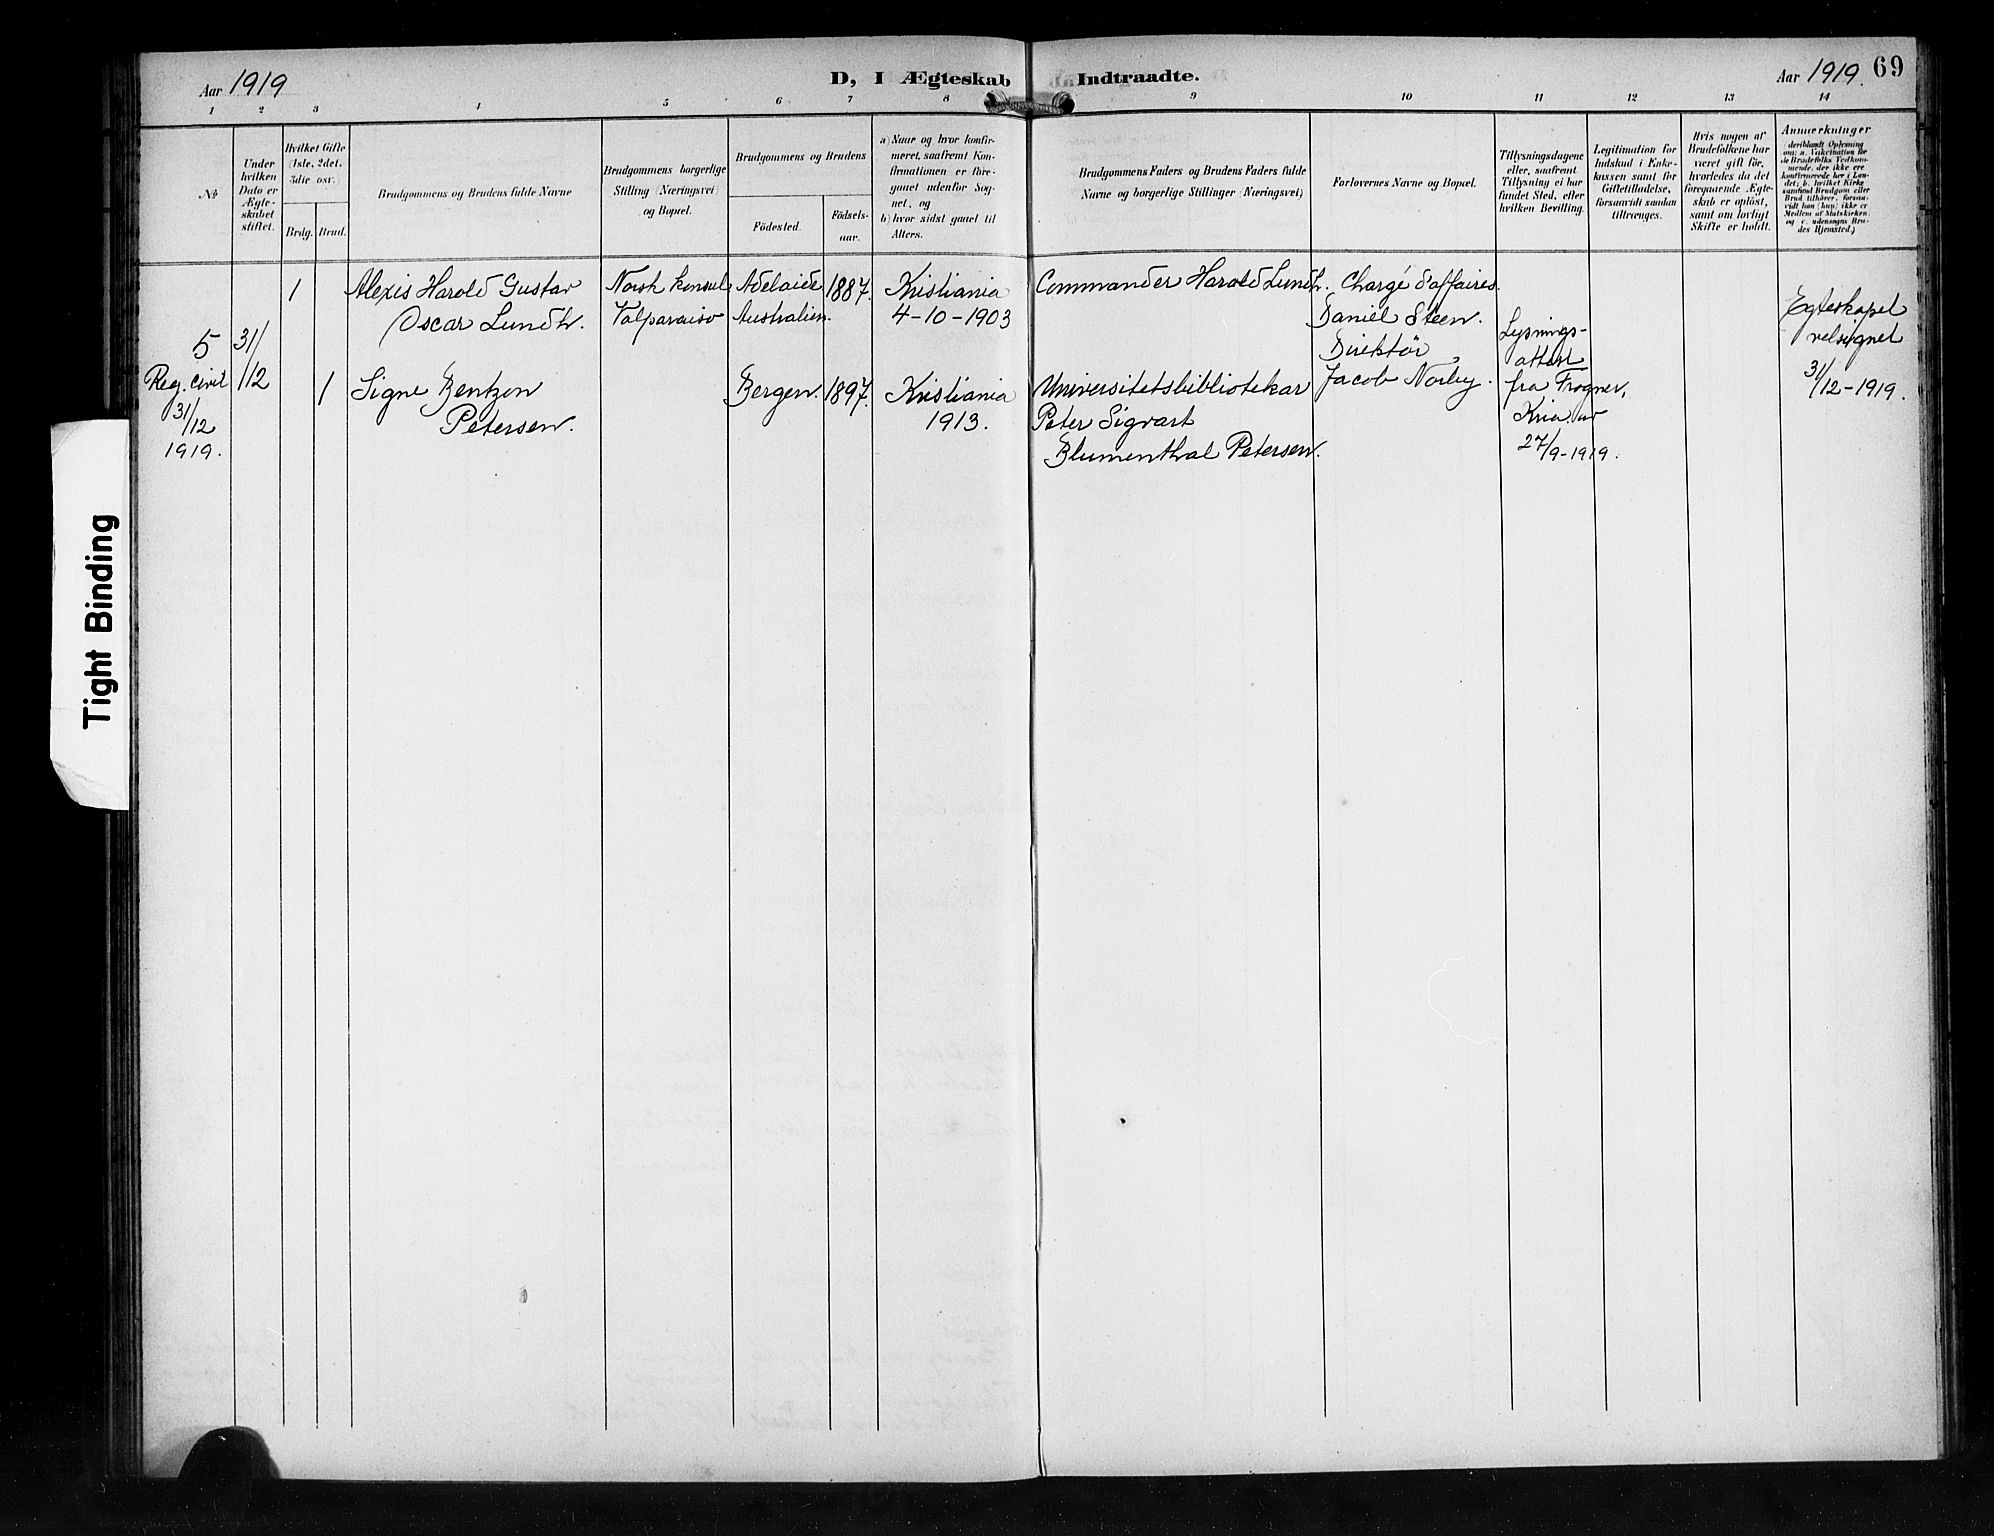 Aar 1919
D, I Ægteskab Indtraadte.
Aar 1919. 69
1 2 3 4 5 6 7 8 9 10 11 12 13 14
No
Under
hvilken
Dato er
Ægte-
skabet
stiftet.
Hvilket Gifte
(1ste, 2det,
3die osv.)
Brdg. Brud.
Brudgommens og Brudens fulde Navne
Brudgommens borgerlige
Stilling (Næringsvei)
og Bopæl.
Brudgommens og Brudens
Födested.
Födsels-
aar.
a) Naar og hvor konfir-
meret, saafremt Kon-
firmationen er fore-
gaaet udenfor Sog-
net, og
b) hvor sidst gaaet til
Alters.
Brudgommens Faders og Brudens Faders fulde
Navne og borgerlige Stillinger (Næringsvei)
Forlovernes Navne og Bopæl.
Tillysningsdagene
eller, saafremt
Tillysning ei har
fundet Sted, efter
hvilken Bevilling.
Legitimation for
Indskud i Enke-
kassen samt for
Giftetilladelse,
forsaavidt saadan
tiltrænges.
Hvis nogen af
Brudefolkene har
været gift før,
hvorledes da det
foregaaende Ægte-
skab er oplöst,
samt om lovligt
Skifte er holdt.
Anmerkninger
(deriblandt Oplysning
om: a. Vakcination for
de Brudefolks Vedkom-
mende, der ikke ere
konfirmerede her i Lan-
det; b. hvilket Kirke-
samfund Brudgom eller
Brud tilhører, forsaa-
vidt han (hun) ikke er
Medlem af Statskirken,
og c. udensogns Bru-
des Hjemsted.)
5
Reg. civit
31/12
1919.
31/
12
1
Alexis Harold Gustav
Oscar Lundh.
Norsk konsul
Valparaiso
Adelaide
Australien.
1887.
Kristiania
4-10-1903
Commander Harold Lundh.
Chargé d'affaires.
Daniel Steen.
Direktör
Jacob Norby.
Lysnings-
attest
fra Frogner,
Kria. av
27/9-1919.
Egteskapet
velsignet
31/12-1919.
1
Signe Bentzon
Petersen.
Bergen.
1897.
Kristiania
1913.
Universitetsbibliotekar
Peter Sigvart
Blumenthal Petersen.
Tight Binding